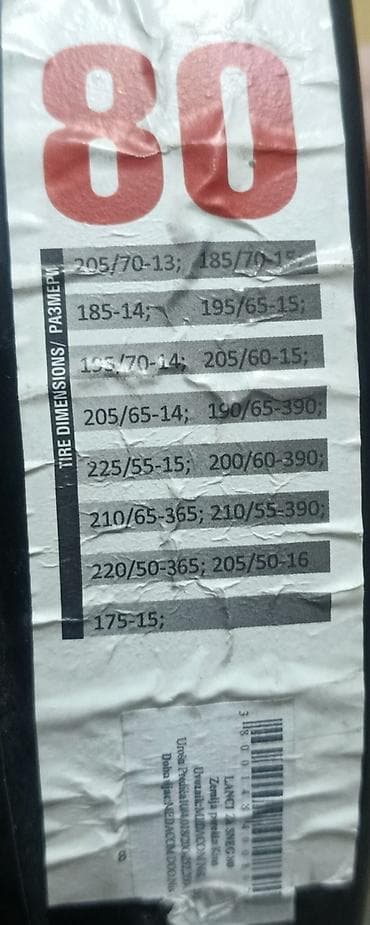 80
TIRE DIMENSIONS/ РАЗМЕРИ
205/70-13; 185/70-15;
185-14; 195/65-15;
195/70-14; 205/60-15;
205/65-14; 190/65-390;
225/55-15; 200/60-390;
210/65-365; 210/55-390;
220/50-365; 205/50-16
175-15;
LANCI ZA SNEG 80
Zemlja porekla: Kina